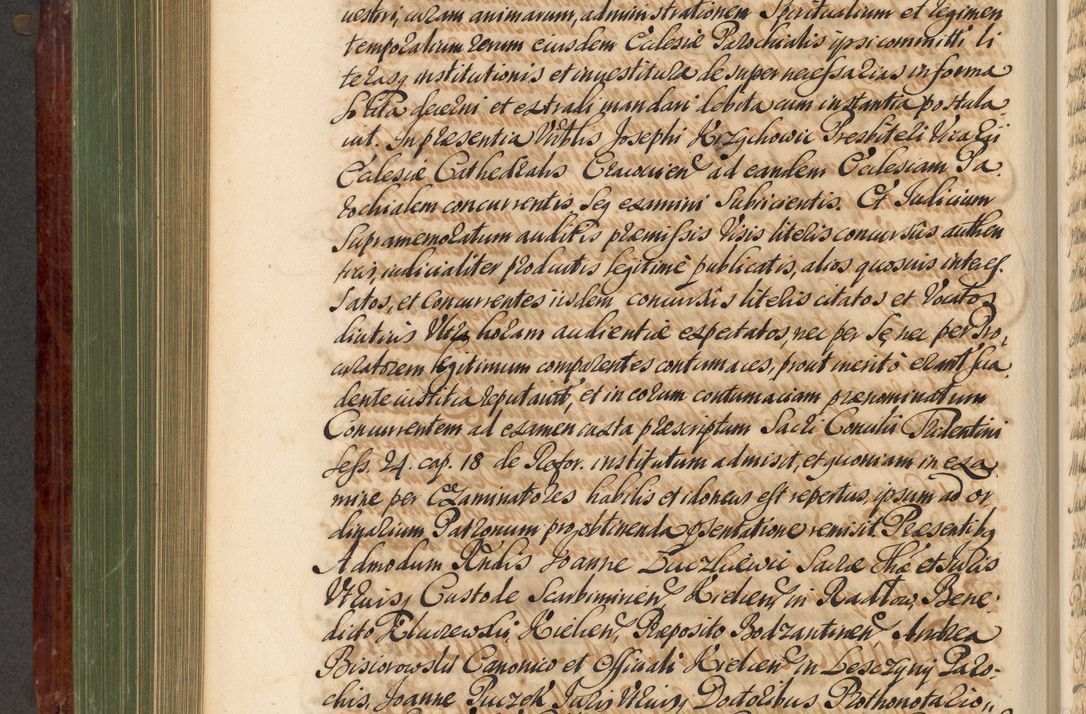 uestri, curam animarum, administrationem Spiritualium et regimen
temporalium rerum eiusdem Ecclesiæ Parochialis ipsi committi li
terasq institutionis et inuestituræ desuper necessarias in forma
solita decerni et extradi mandari debita cum instantia postula
uit. In præsentia Vrblis Josephi Krzychowic Presbiteri Vicarii
Ecclesiæ Cathedralis Cracouien ad eandem Ecclesiam Pa
rochialem concurrentis seq examini subiicientis. Et Judicium
supramemoratum auditis præmissis Visis literis concursus authen
ticis, iudicialiter productis legitimè publicatis, alios quosuis interes
satos, et Concurrentes iisdem concursûs literis citatos et Vocatos
diutius Vltra horam audientiæ expectatos, nec per se, nec per Pro
curatorem legitimum comparentes contumaces, prout meritò erant sua
dente iustitia reputauit, et in eorum contumaciam prænominatum
Concurrentem ad examen iuxta præscriptum Sacri Concilii Tridentini
Sess. 24. cap. 18 de Refor. institutum admisit, et quoniam in exa
mine per Examinatores habilis et idoneus est repertus, ipsum ad or
dinarium Patronum pro obtinenda præsentatione remisit. Præsentibq
Admodum Rndis Joanne Sacræ Thæ et Juris
Vtrius, Custode Scarbimirien Kielien in Radłow, Bene
dicto Kluczewski, Kielien, Præposito Bodzantinen Andrea
Bisiorowski Canonico et Officiali Kielien in Leszczyny Paro
chis, Joanne Puczek Juris Vtrius, Doctoribus Prothonotario